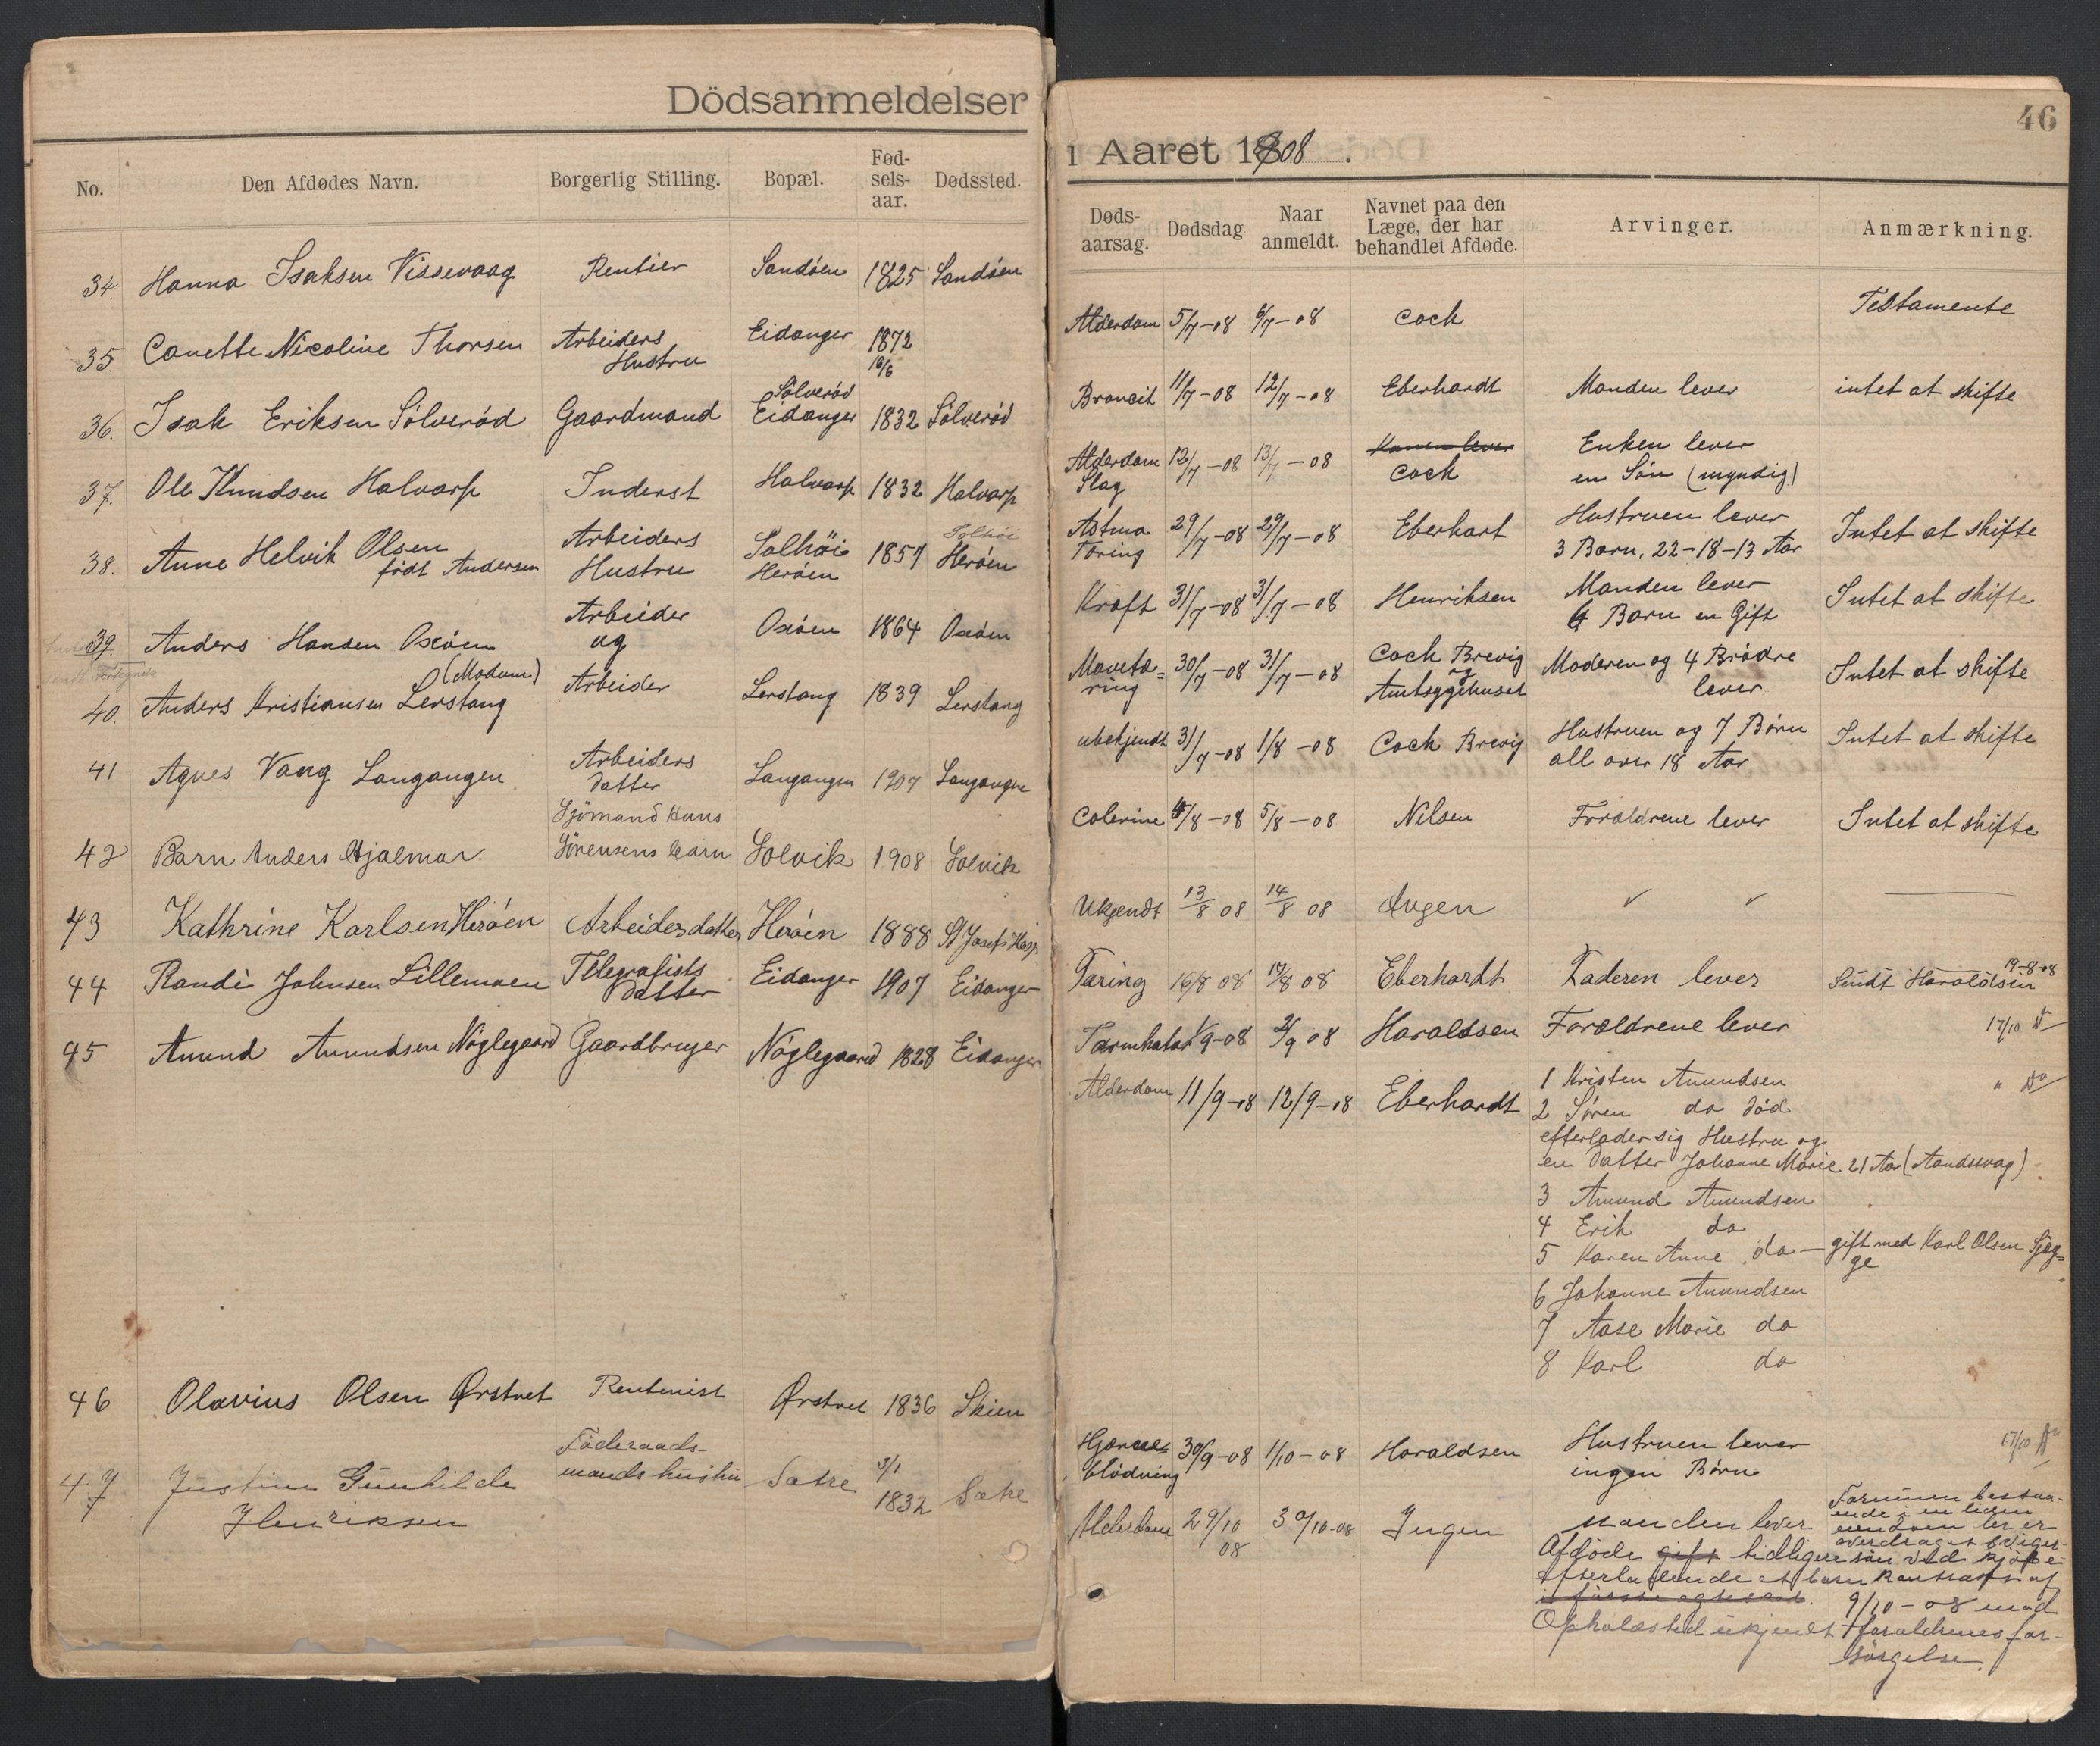 Dödsanmeldelser
No.
Den Afdødes Navn.
Borgerlig Stilling.
Bopæl.
Fød-
sels-
aar.
Dødssted.
34. Hanna Isaksen Vissevaag Rentier Sandøen 1825 Sandøen
35. Canette Nicoline Thorsen Arbeiders Eidanger 1872
Hustru 16/6
Sölverød
36. Isak Eriksen Sölverød Gaardmand Eidanger 1832 Sölverød
37. Ole Knudsen Halvarp Inderst Halvarp 1832 Halvarp
38. Anne Helvik Olsen Arbeiders Solhöi 1857 Solhöi
født Andersen Hustru Herøen Herøen
39. Anders Hansen Oxöen Arbeider Oxöen 1864 Oxöen
og
(Modum)
40. Anders Kristiansen Lerstang Arbeider Lerstang 1839 Lerstang
41 Agnes Vang Langangen Arbeiders Langangen 1907 Langangen
datter
Sjömand Hans
42 Barn Anders Hjalmar Sörensens barn Solvik 1908 Solvik
43 Kathrine Karlsen Herøen Arbeiderdatter Herøen 1888 St Josefs Hosp
44 Randi Johnsen Lillemoen Telegrafists Eidanger 1907 Eidanger
Datter
45 Amund Amundsen Nøglegaard Gaardbruger Nøglegaard 1828 Eidanger
46 Olavius Olsen Ørstvet Rentenist Ørstvet 1836 Skien
Föderaads-
47 Justine Gunhilde mands hustru Satre 3/1 Satre
Henriksen 1832
i Aaret 1908.
46
Døds-
aarsag.
Dødsdag
Naar
anmeldt.
Navnet paa den
Læge, der har
behandlet Afdøde.
Arvinger.
Anmærkning.
Alderdom 5/7-08 6/7-08 Cock Testamente
Broncit 11/7-08 12/7-08 Eberhardt Manden lever intet at skifte
Alderdom 12/7-08 13/7-08 Konen lever Enken lever
Slag Cock en Sön (myndig)
Astma 29/7-08 29/7-08 Eberhart Hustruen lever Intet at skifte
Tæring 3 Barn, 22-18-13 Aar
Kræft 31/7-08 31/7-08 Henriksen Manden lever Intet at skifte
4 Barn en Gift
Mavetæ= 30/7-08 31/7-08 Cock Brevig Moderen og 4 Brödre Intet at skifte
ring og lever
Amtsygehuset
ubekjendt 31/7-08 1/8-08 Cock Brevig Hustruen og 7 Börn Intet at skifte
all over 18 Aar
Colerine 4/8-08 5/8-08 Nilsen Forældrene lever Intet at skifte
Ukjendt 13/8 08 14/8 08 Ingen
Tæring 16/8 08 17/8 08 Eberhardt Faderen lever Sendt Haraldsen 19-8-08
Tarmkatar 1/9-08 2/9 08 Haraldsen Forældrene lever 17/10
Alderdom 11/9-08 12/9-08 Eberhardt 1 Kristen Amundsen
2 Sören do död
efterlader sig Hustru og
en datter Johanne Marie 21 Aar (Aandssvag)
3 Amund Amundsen
4 Erik do
5 Karen Anne do — gift med Karl Olsen Sjeg=
ge
6 Johanne Amundsen
7 Aase Marie do
8 Karl do
Hjærne= 30/9-08 1/10-08 Haraldsen Hustruen lever 17/10
blödning ingen Börn
Alderdom 29/10 30/10-08 Ingen Manden lever
08
Afdøde gift tidligere
efterladende et barn
Opholdssted ukjendt
Formuen bestaa-
ende i en liden
eiendom der er
overdraget
sön ved kjöbe-
kontrakt af
9/10-08 mod
forældrenes for-
sörgelse.